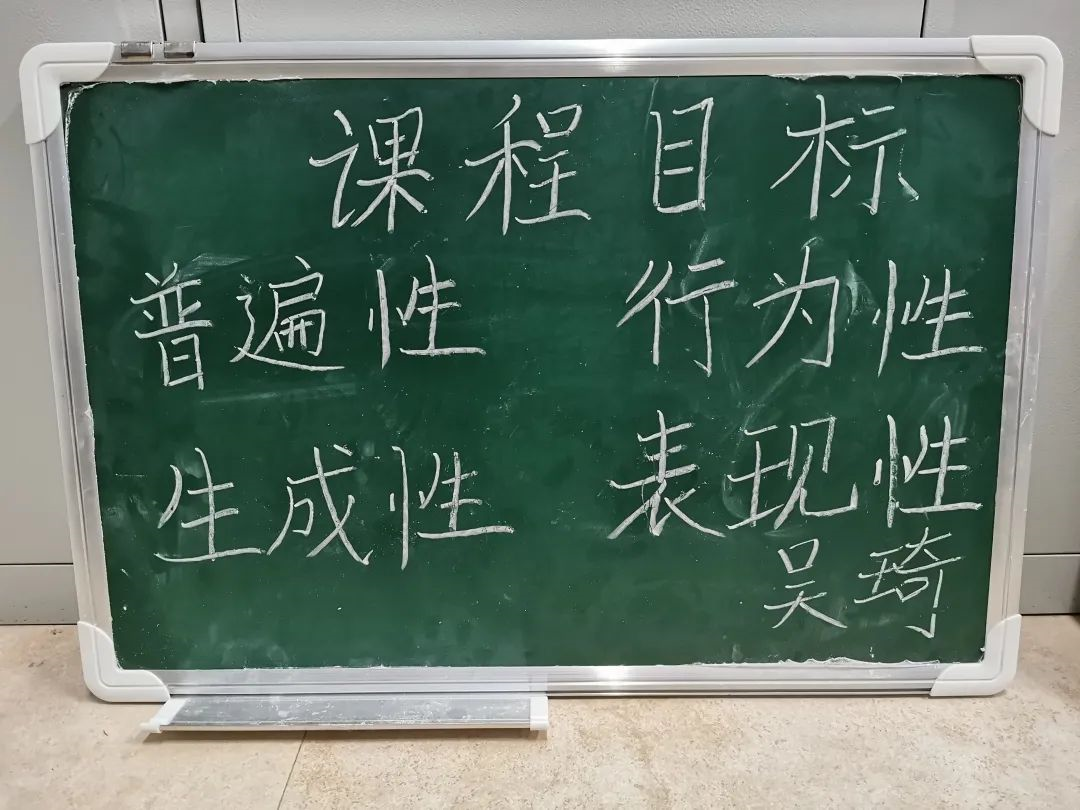 课程目标
普遍性 行为性
生成性 表现性
吴琦